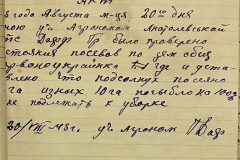 Акт
5 года Августа м-ця 20го дня
ною уч. Агрономом Анатольевской
тс было проверено
состояния посевов по зем общ
рвоноукраинка где и уста
влено что подсолнух посеяно
га из них 10 га погыбло
не подлежат к уборке
20/VIII 45г. уч. агроном